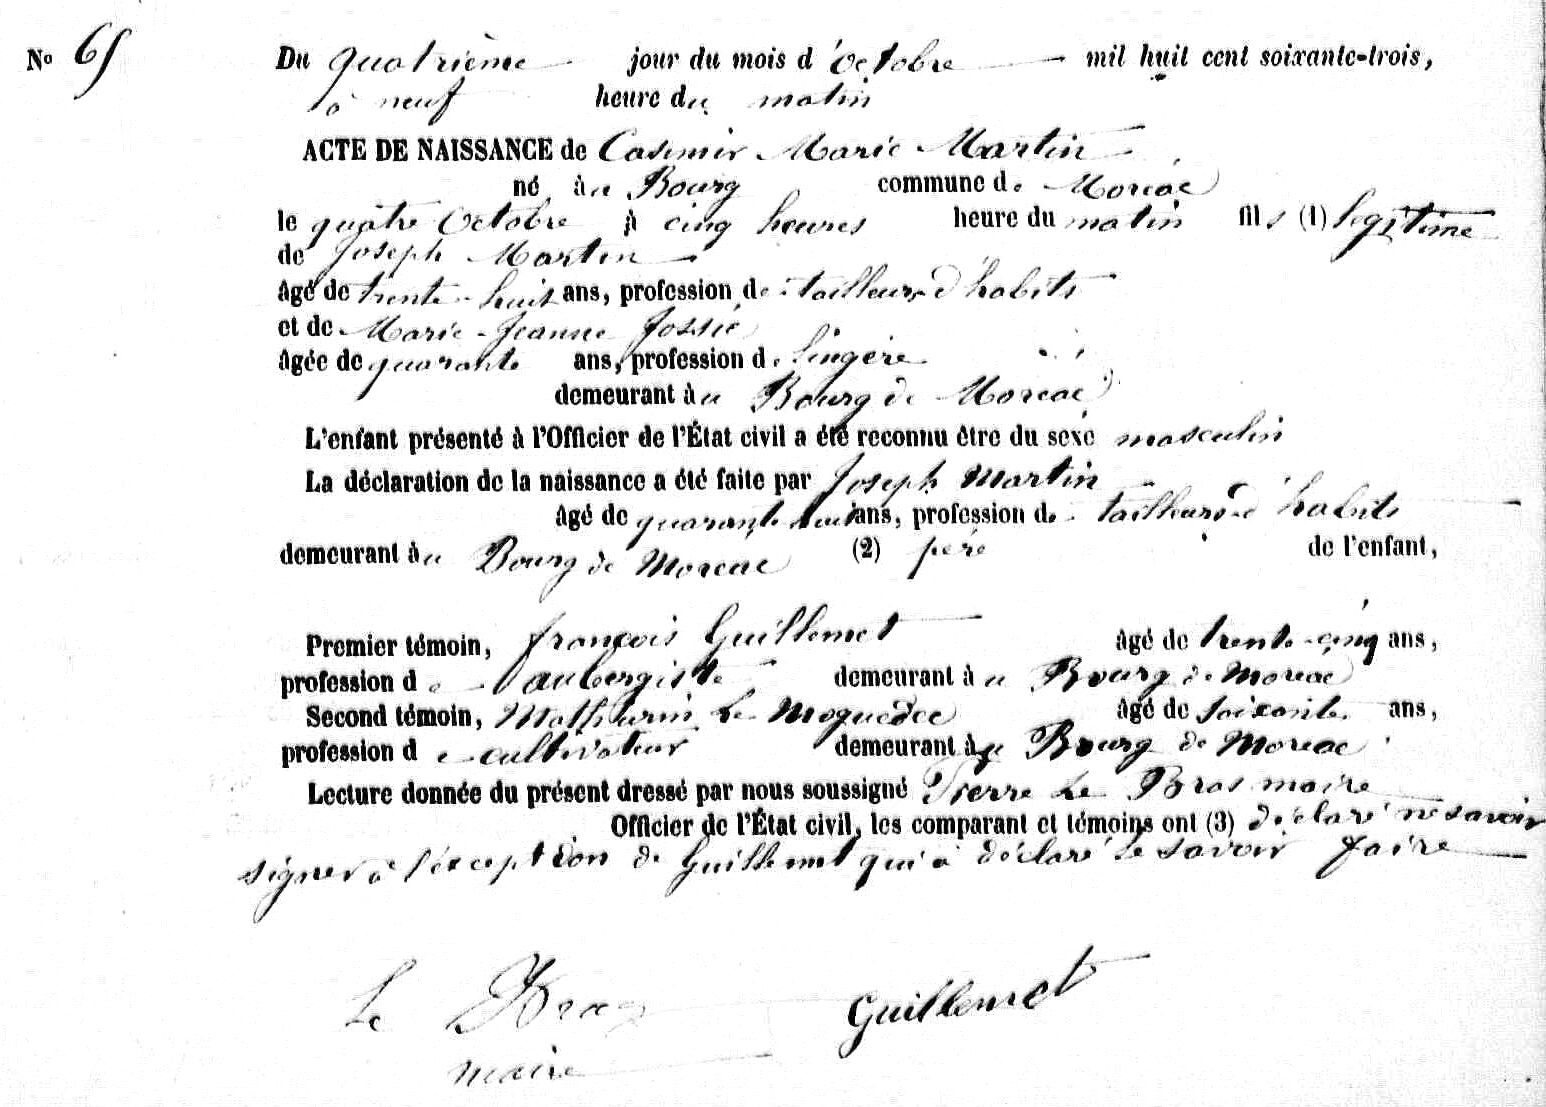 No 65
Du quatrième jour du mois d'octobre mil huit cent soixante-trois,
à neuf heure du matin
ACTE DE NAISSANCE de Casimir Marie Martin
né au Bourg commune de Moréac
le quatre Octobre à cinq heures heure du matin fils (1) légitime
de Joseph Martin
âgé de trente-huit ans, profession de tailleur d'habits
et de Marie-Jeanne Jossie
âgée de quarante ans, profession de lingère
demeurant au Bourg de Moréac
L'enfant présenté à l'Officier de l'État civil a été reconnu être du sexe masculin
La déclaration de la naissance a été faite par Joseph Martin
âgé de quarante huit ans, profession de tailleur d'habits
demeurant au Bourg de Moréac (2) père de l'enfant,
Premier témoin, françois Guillemet âgé de trente-cinq ans,
profession de aubergiste demeurant au Bourg de Moréac
Second témoin, Mathurin Le Moguedec âgé de soixante ans,
profession de cultivateur demeurant au Bourg de Moréac
Lecture donnée du présent dressé par nous soussigné Pierre Le Bras maire
Officier de l'État civil, les comparant et témoins ont (3) déclaré ne savoir
signer à l'éxception de Guillemet qui a déclaré le savoir faire
Le Bras Guillemet
maire